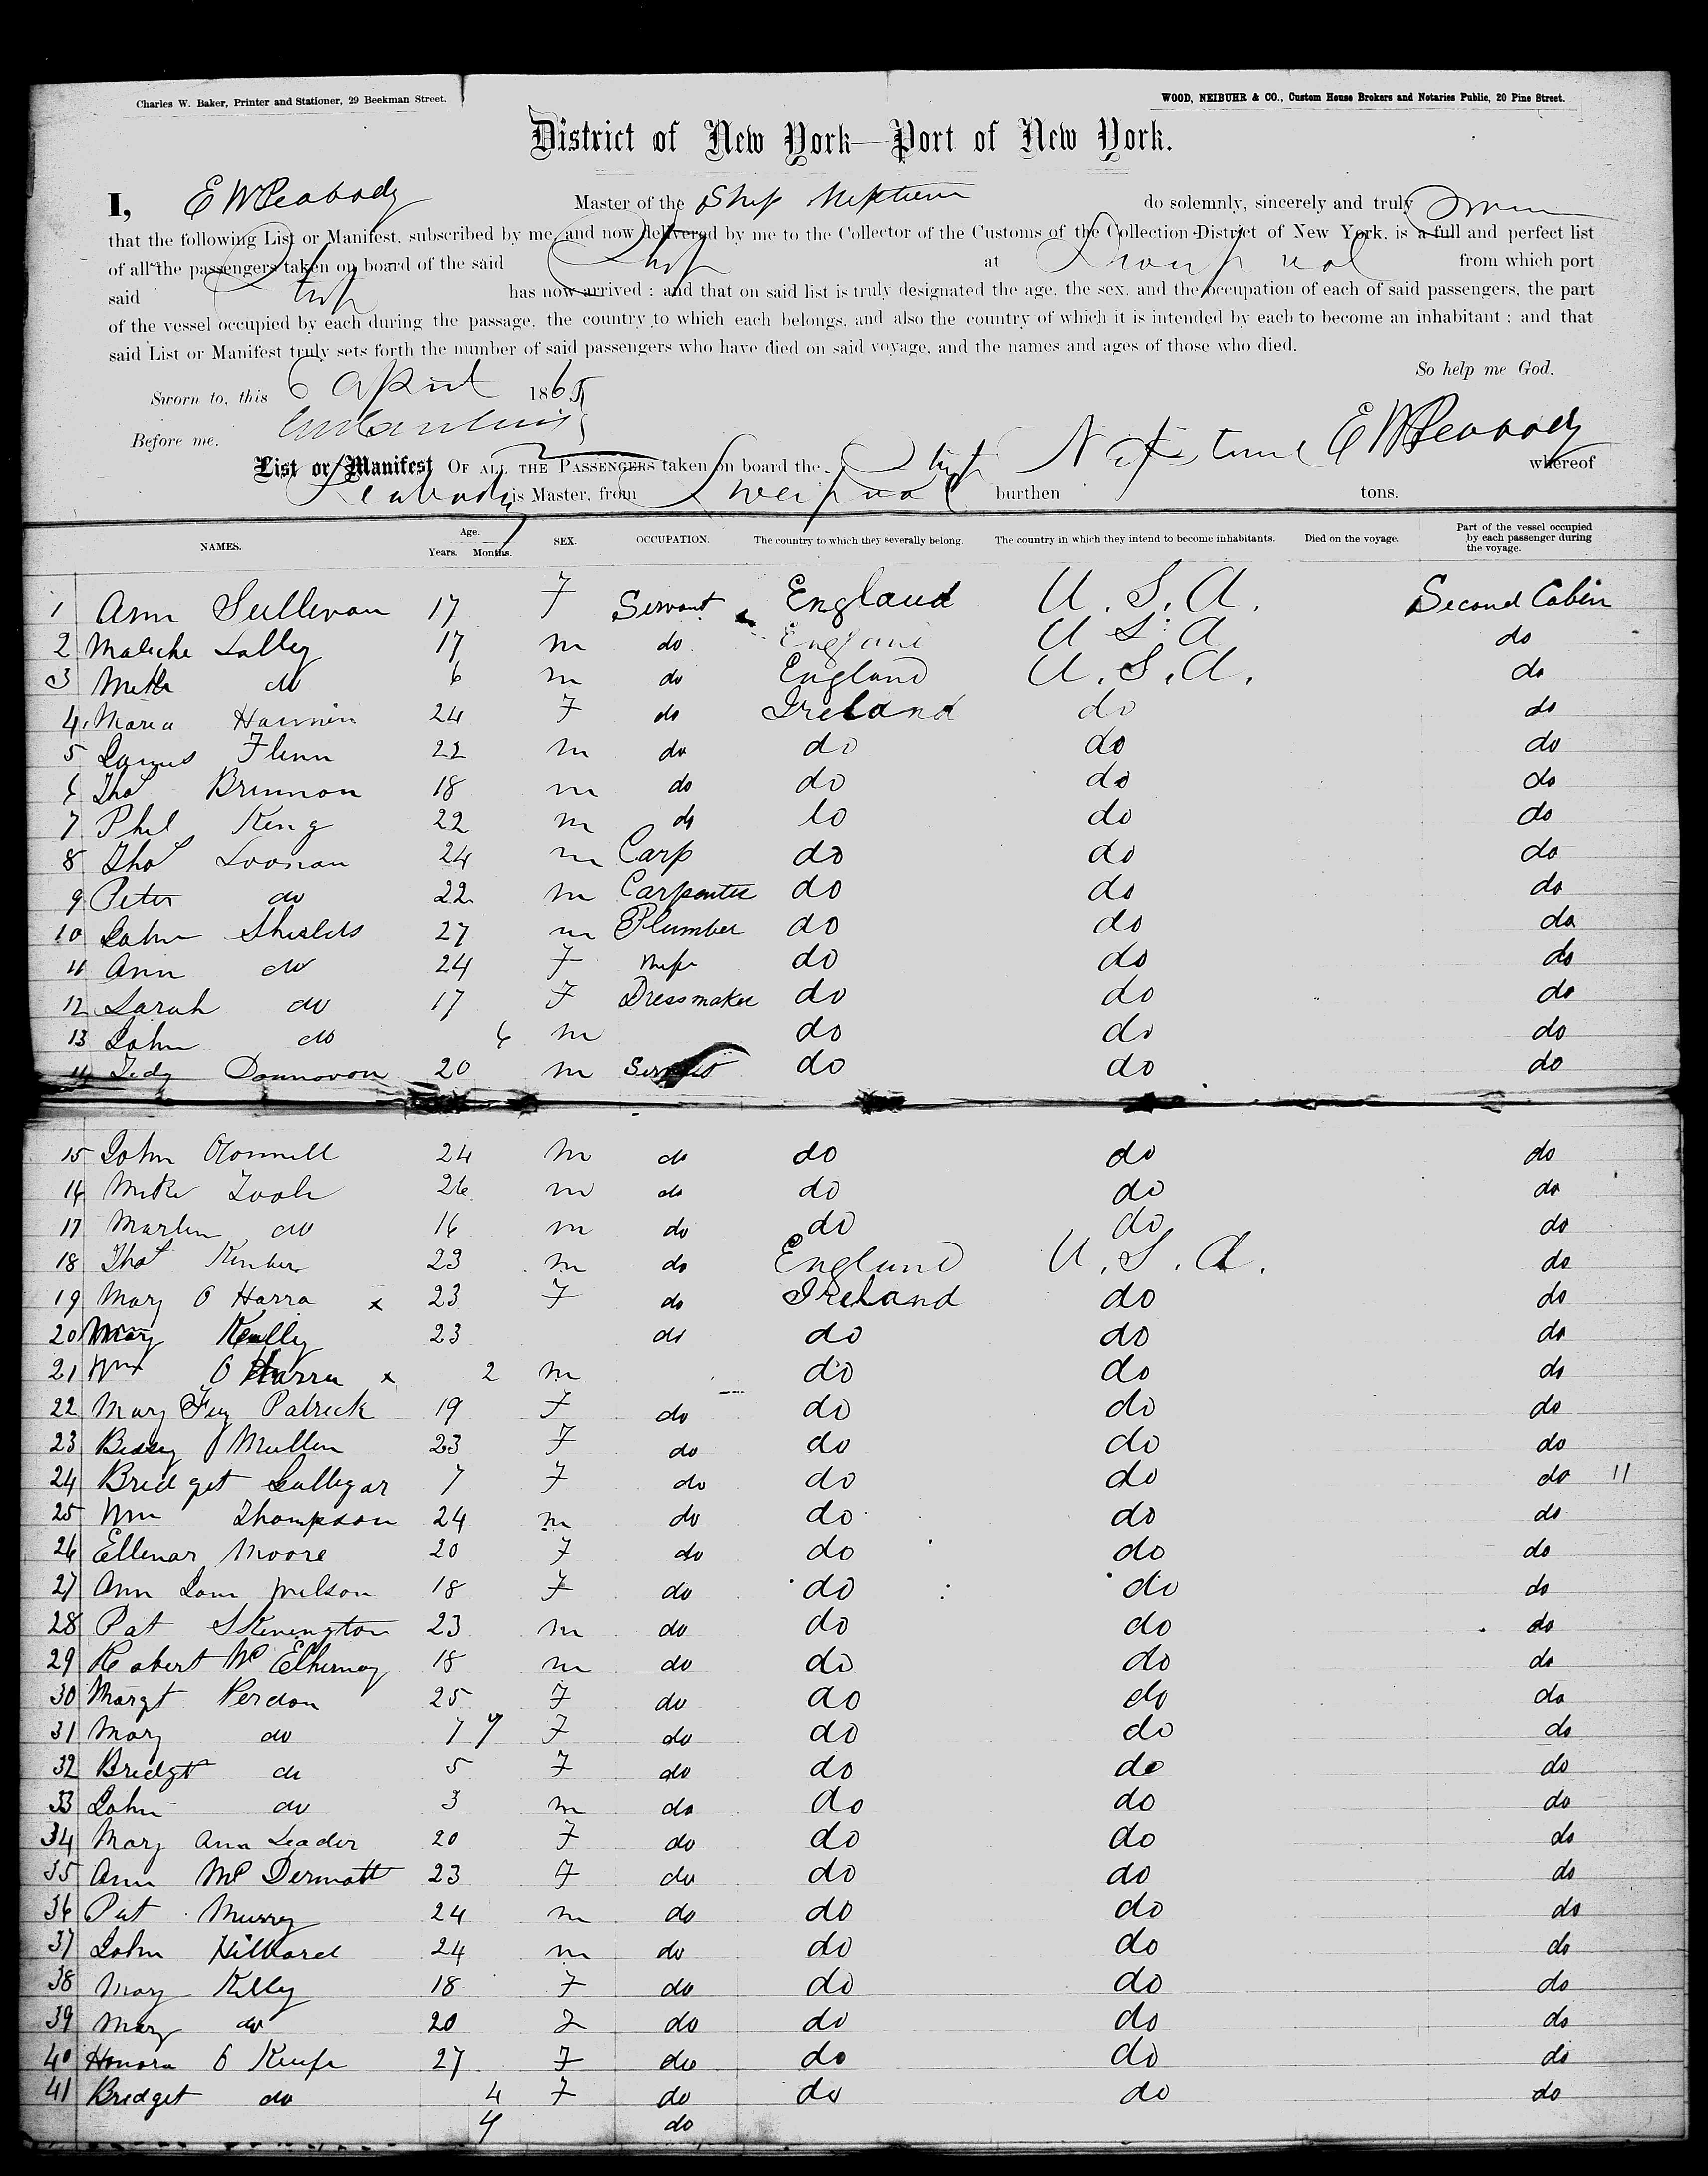 Charles W. Baker, Printer and Stationer, 29 Beekman Street.
WOOD, NEIBUHR & CO., Custom House Brokers and Notaries Public, 20 Pine Street.
District of New York—Port of New York.
I, E W Peabody Master of the Ship Neptune do solemnly, sincerely and truly
that the following List or Manifest, subscribed by me, and now delivered by me to the Collector of the Customs of the Collection District of New York, is a full and perfect list
of all the passengers taken on board of the said Ship at Liverpool from which port
said Ship has now arrived; and that on said list is truly designated the age, the sex, and the occupation of each of said passengers, the part
of the vessel occupied by each during the passage, the country to which each belongs, and also the country of which it is intended by each to become an inhabitant; and that
said List or Manifest truly sets forth the number of said passengers who have died on said voyage, and the names and ages of those who died.
So help me God.
Sworn to, this 6 April 1865
Before me, E W Peabody
List or Manifest OF ALL THE PASSENGERS taken on board the Ship Neptune whereof
Peabody is Master, from Liverpool burthen tons.
NAMES. Age. Years. Months. SEX. OCCUPATION. The country to which they severally belong. The country in which they intend to become inhabitants. Died on the voyage. Part of the vessel occupied by each passenger during the voyage.
1 Ann Sullivan 17 F Servant England U.S.A. Second Cabin
2 Maliche Lalley 17 m do England U S A do
3 do 6 m do England U.S.A. do
4 Maria Hannin 24 F do Ireland do do
5 James Flinn 22 m do do do do
6 Thos Brinnon 18 m do do do do
7 Phil King 22 m do do do do
8 Thos Loonan 24 m Carp do do do
9 Peter do 22 m Carpenter do do do
10 John Shields 27 m Plumber do do do
11 Ann do 24 F Wife do do do
12 Sarah do 17 F Dressmaker do do do
13 John do 6 m do do do
14 Tedy Donnovon 20 m do do do
15 John OConnell 24 m do do do do
16 Mike Toole 26 m do do do do
17 Martin do 16 m do do do do
18 Thos 23 m do England U.S.A. do
19 Mary O Harra x 23 F do Ireland do do
20 Mary Kelly 23 do do do do
21 Wm O Harra x 2 m do do do
22 Mary Fitz Patrick 19 F do do do do
23 Bessy Mullen 23 F do do do do
24 Bridget Galligar 7 F do do do do 11
25 Wm Thompson 24 m do do do do
26 Ellenar Moore 20 F do do do do
27 Ann Jane Wilson 18 F do do do do
28 Pat Skenington 23 m do do do do
29 Robert Mc Elhernoy 18 m do do do do
30 Margt Perdon 25 F do do do do
31 Mary do 7 7 F do do do do
32 Bridgt do 5 F do do do do
33 John do 3 m do do do do
34 Mary Ann Leader 20 F do do do do
35 Ann Mc Dermott 23 F do do do do
36 Pat Murry 24 m do do do do
37 John Hilliard 24 m do do do do
38 Mary Killy 18 F do do do do
39 Mary do 20 F do do do do
40 Honora O Keefe 27 F do do do do
41 Bridget do 4 F do do do do
4 do